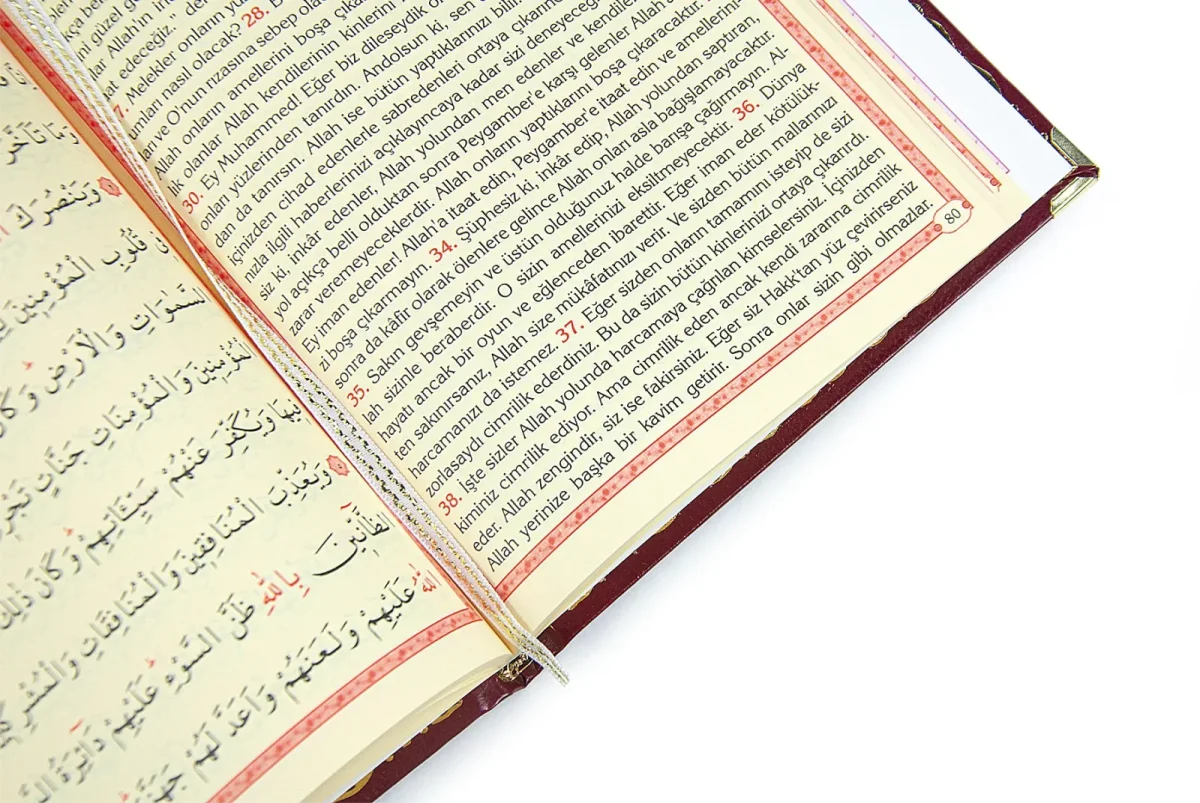 تَاَخَّرَ
وَيَنْصُرَكَ
قُلُوبِ الْمُؤْمِنِينَ
السَّمٰوَاتِ وَالْاَرْضِ وَكَانَ
الْمُؤْمِنِينَ وَالْمُؤْمِنَاتِ جَنَّاتٍ
فِيهَا وَيُكَفِّرَ عَنْهُمْ سَيِّـَٔاتِهِمْ وَكَانَ ذٰلِكَ
وَيُعَذِّبَ الْمُنَافِقِينَ وَالْمُنَافِقَاتِ
الظَّٓانِّينَ بِاللّٰهِ ظَنَّ السَّوْءِ عَلَيْهِمْ دَٓائِرَةُ
اللّٰهُ عَلَيْهِمْ وَلَعَنَهُمْ وَاَعَدَّ لَهُمْ
nasıl olacak? 28.
ve O'nun rızasına sebep
onların amellerini boşa
olanlar Allah kendilerinin kinlerini
30. Ey Muhammed! Eğer biz dileseydik
onları yüzlerinden tanırdın. Andolsun ki, sen
dan da tanırsın. Allah ise bütün yaptıklarınızı bilir.
içinizden cihad edenlerle sabredenleri ortaya çıkarıncaya
nızla ilgili haberlerinizi açıklayıncaya kadar sizi deneyeceğiz.
siz ki, inkâr edenler, Allah yolundan men edenler ve kendilerine
yol açıkça belli olduktan sonra Peygamber'e karşı gelenler Allah'a
zarar veremeyeceklerdir. Allah onların yaptıklarını boşa çıkaracaktır.
Ey iman edenler! Allah'a itaat edin, Peygamber'e itaat edin ve amellerini-
zi boşa çıkarmayın. 34. Şüphesiz ki, inkâr edip, Allah yolundan saptıran,
sonra da kâfir olarak ölenlere gelince Allah onları asla bağışlamayacaktır.
35. Sakın gevşemeyin ve üstün olduğunuz halde barışa çağırmayın. Al-
lah sizinle beraberdir. O sizin amellerinizi eksiltmeyecektir. 36. Dünya
hayatı ancak bir oyun ve eğlenceden ibarettir. Eğer iman eder kötülük-
ten sakınırsanız, Allah size mükâfatınızı verir. Ve sizden bütün mallarınızı
harcamanızı da istemez. 37. Eğer sizden onların tamamını isteyip de sizi
zorlasaydı cimrilik ederdiniz. Bu da sizin bütün kinlerinizi ortaya çıkarırdı.
38. İşte sizler Allah yolunda harcamaya çağrılan kimselersiniz. İçinizden
kiminiz cimrilik ediyor. Ama cimrilik eden ancak kendi zararına cimrilik
eder. Allah zengindir, siz ise fakirsiniz. Eğer siz Hakk'tan yüz çevirirseniz
Allah yerinize başka bir kavim getirir. Sonra onlar sizin gibi olmazlar.
80